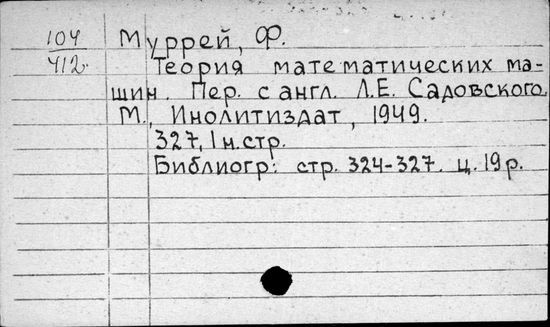 104 Муррей, Ф.
412. Теория математических ма-
шин. Пер. с англ. Л.Е. Садовского.
М., Инолитиздат, 1949.
327, 1 н.стр.
Библиогр: стр. 324-327. ц. 19 р.